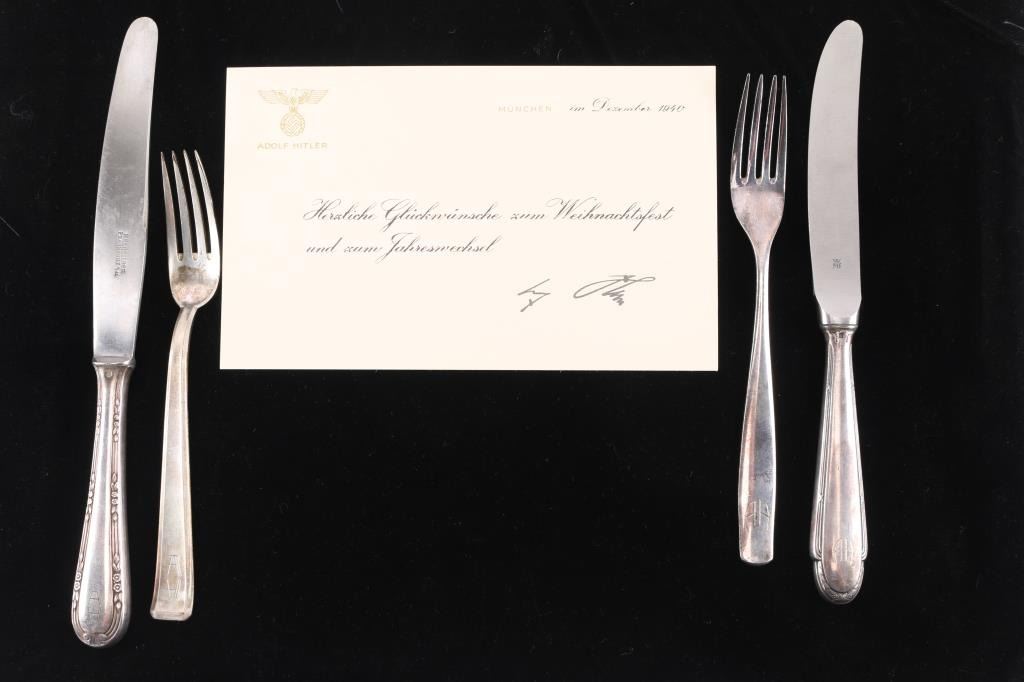 MÜNCHEN im Dezember 1940
ADOLF HITLER
Herzliche Glückwünsche zum Weihnachtsfest
und zum Jahreswechsel
WMF